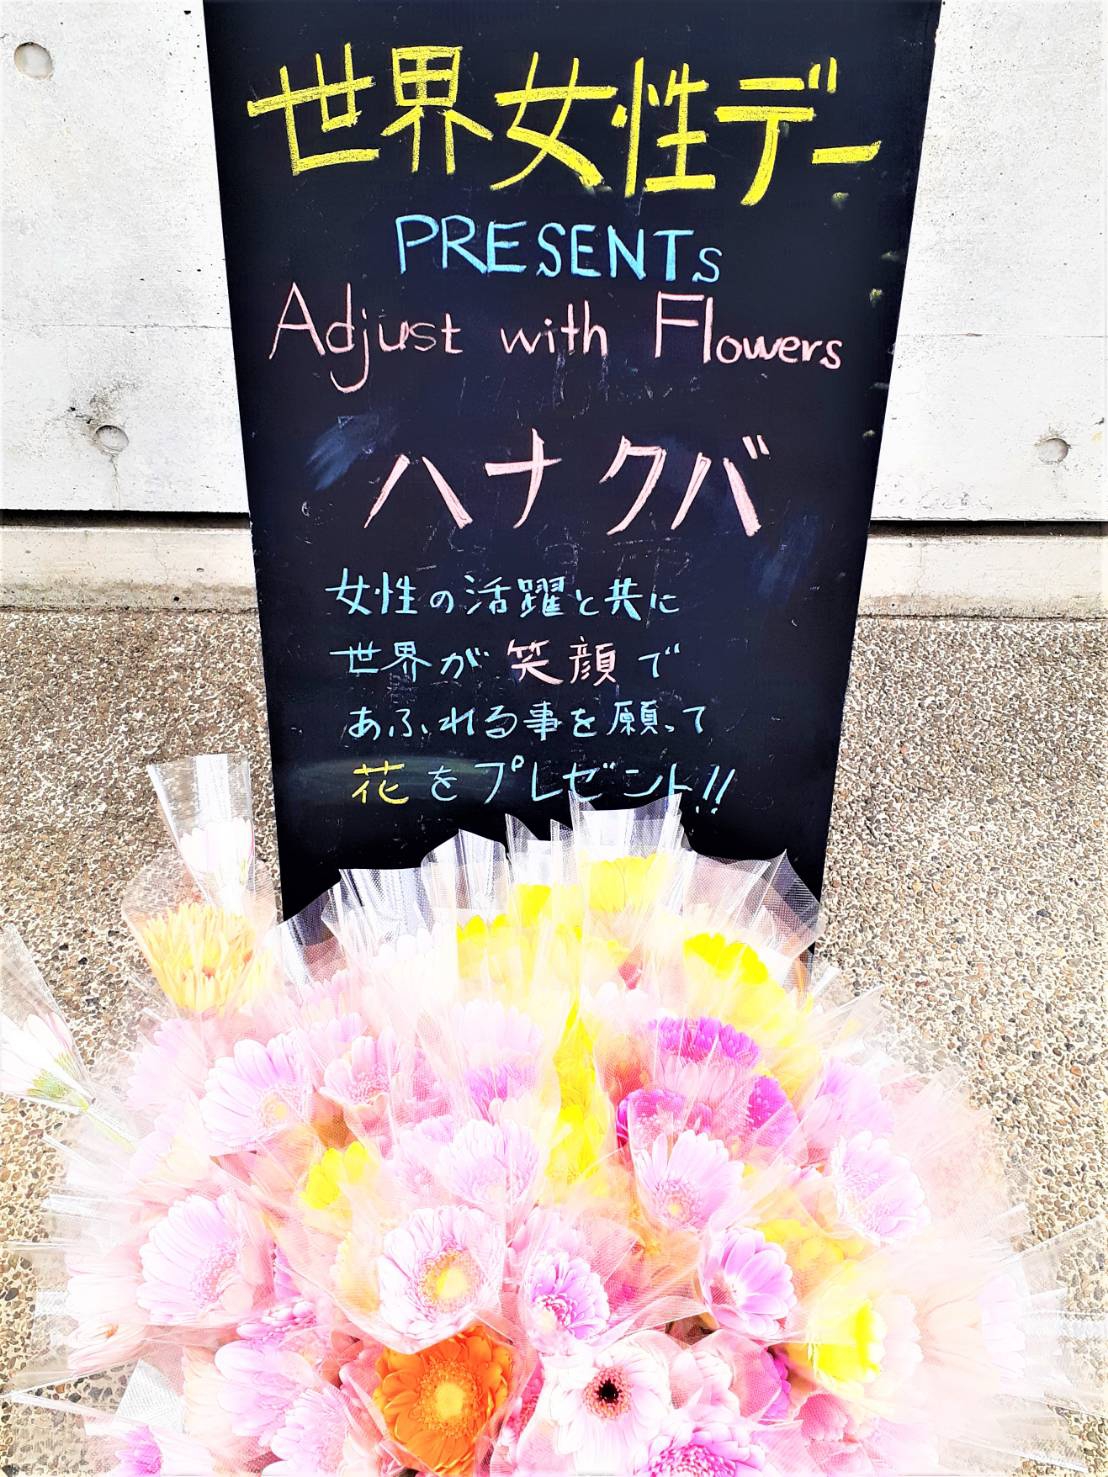 世界女性デー
PRESENTs
Adjust with Flowers
ハナクバ
女性の活躍と共に
世界が笑顔で
あふれる事を願って
花をプレゼント!!